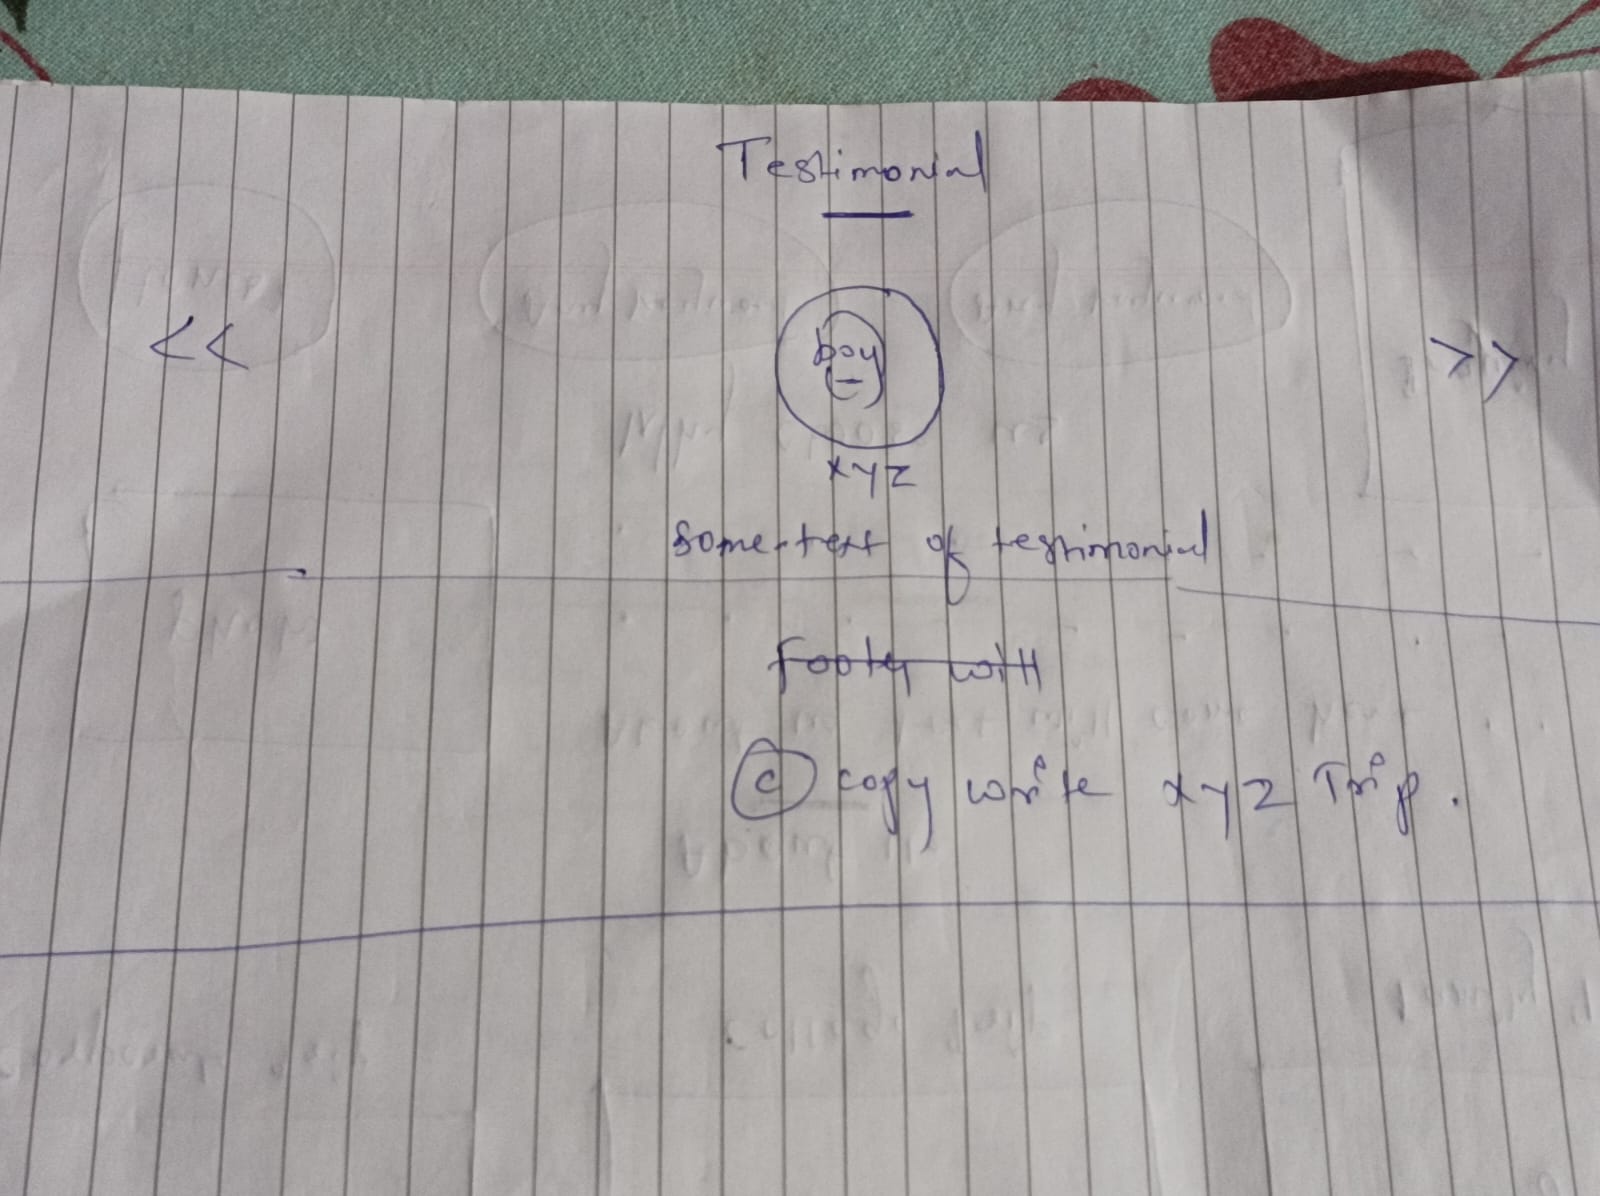 Testimonial
<< boy >>
xyz
some text of testimonial
Footer with
© copy write xyz Trip.